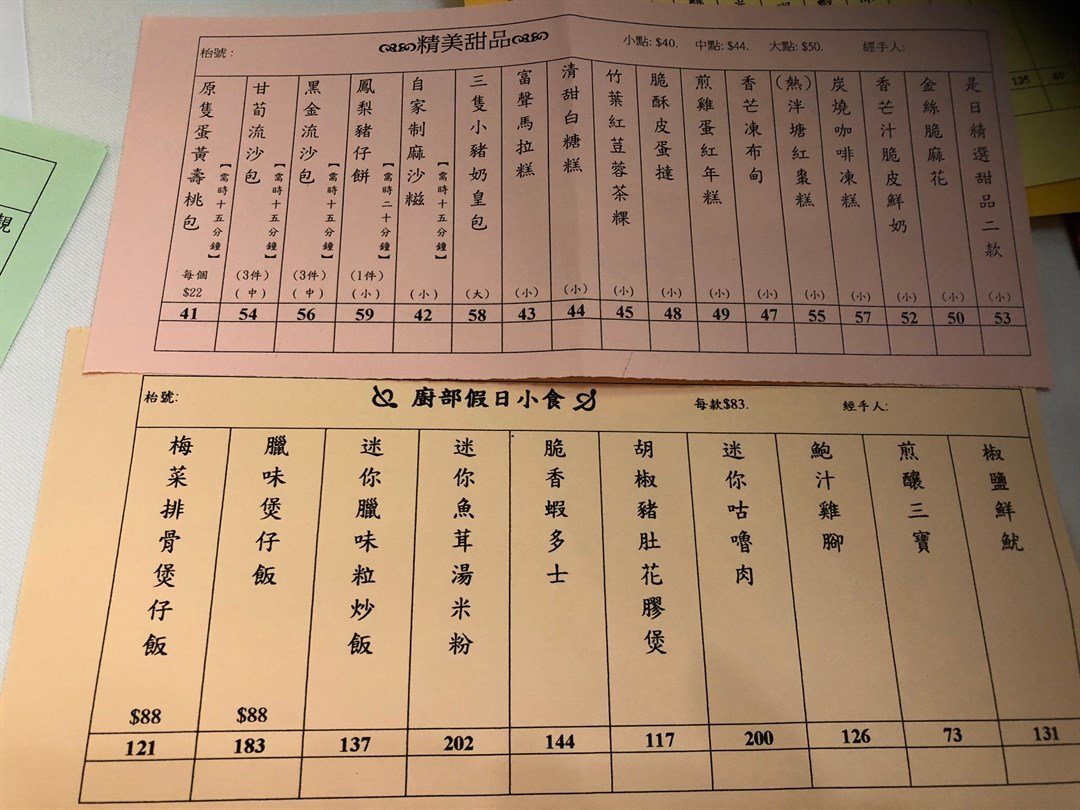 精美甜品
枱號：
小點: $40.
中點: $44.
大點: $50.
經手人:
是日精選甜品二款
（小）
53
金絲脆麻花
（小）
50
香芒汁脆皮鮮奶
（小）
52
炭燒咖啡凍糕
（小）
57
（熱）泮塘紅棗糕
（小）
55
香芒凍布甸
（小）
47
煎雞蛋紅年糕
（小）
49
脆酥皮蛋撻
（小）
48
竹葉紅荳蓉茶粿
（小）
45
清甜白糖糕
（小）
44
富聲馬拉糕
（小）
43
三隻小豬奶皇包
（大）
58
自家制麻沙糍
【需時十五分鐘】
（小）
42
鳳梨豬仔餅
【需時二十分鐘】
（1件）
（小）
59
黑金流沙包
【需時十五分鐘】
（3件）
（中）
56
甘荀流沙包
【需時十五分鐘】
（3件）
（中）
54
原隻蛋黃壽桃包
【需時十五分鐘】
每個
$22
41
枱號:
廚部假日小食
每款$83.
經手人:
椒鹽鮮魷
131
煎釀三寶
73
鮑汁雞腳
126
迷你咕嚕肉
200
胡椒豬肚花膠煲
117
脆香蝦多士
144
迷你魚茸湯米粉
202
迷你臘味粒炒飯
137
臘味煲仔飯
$88
183
梅菜排骨煲仔飯
$88
121
135